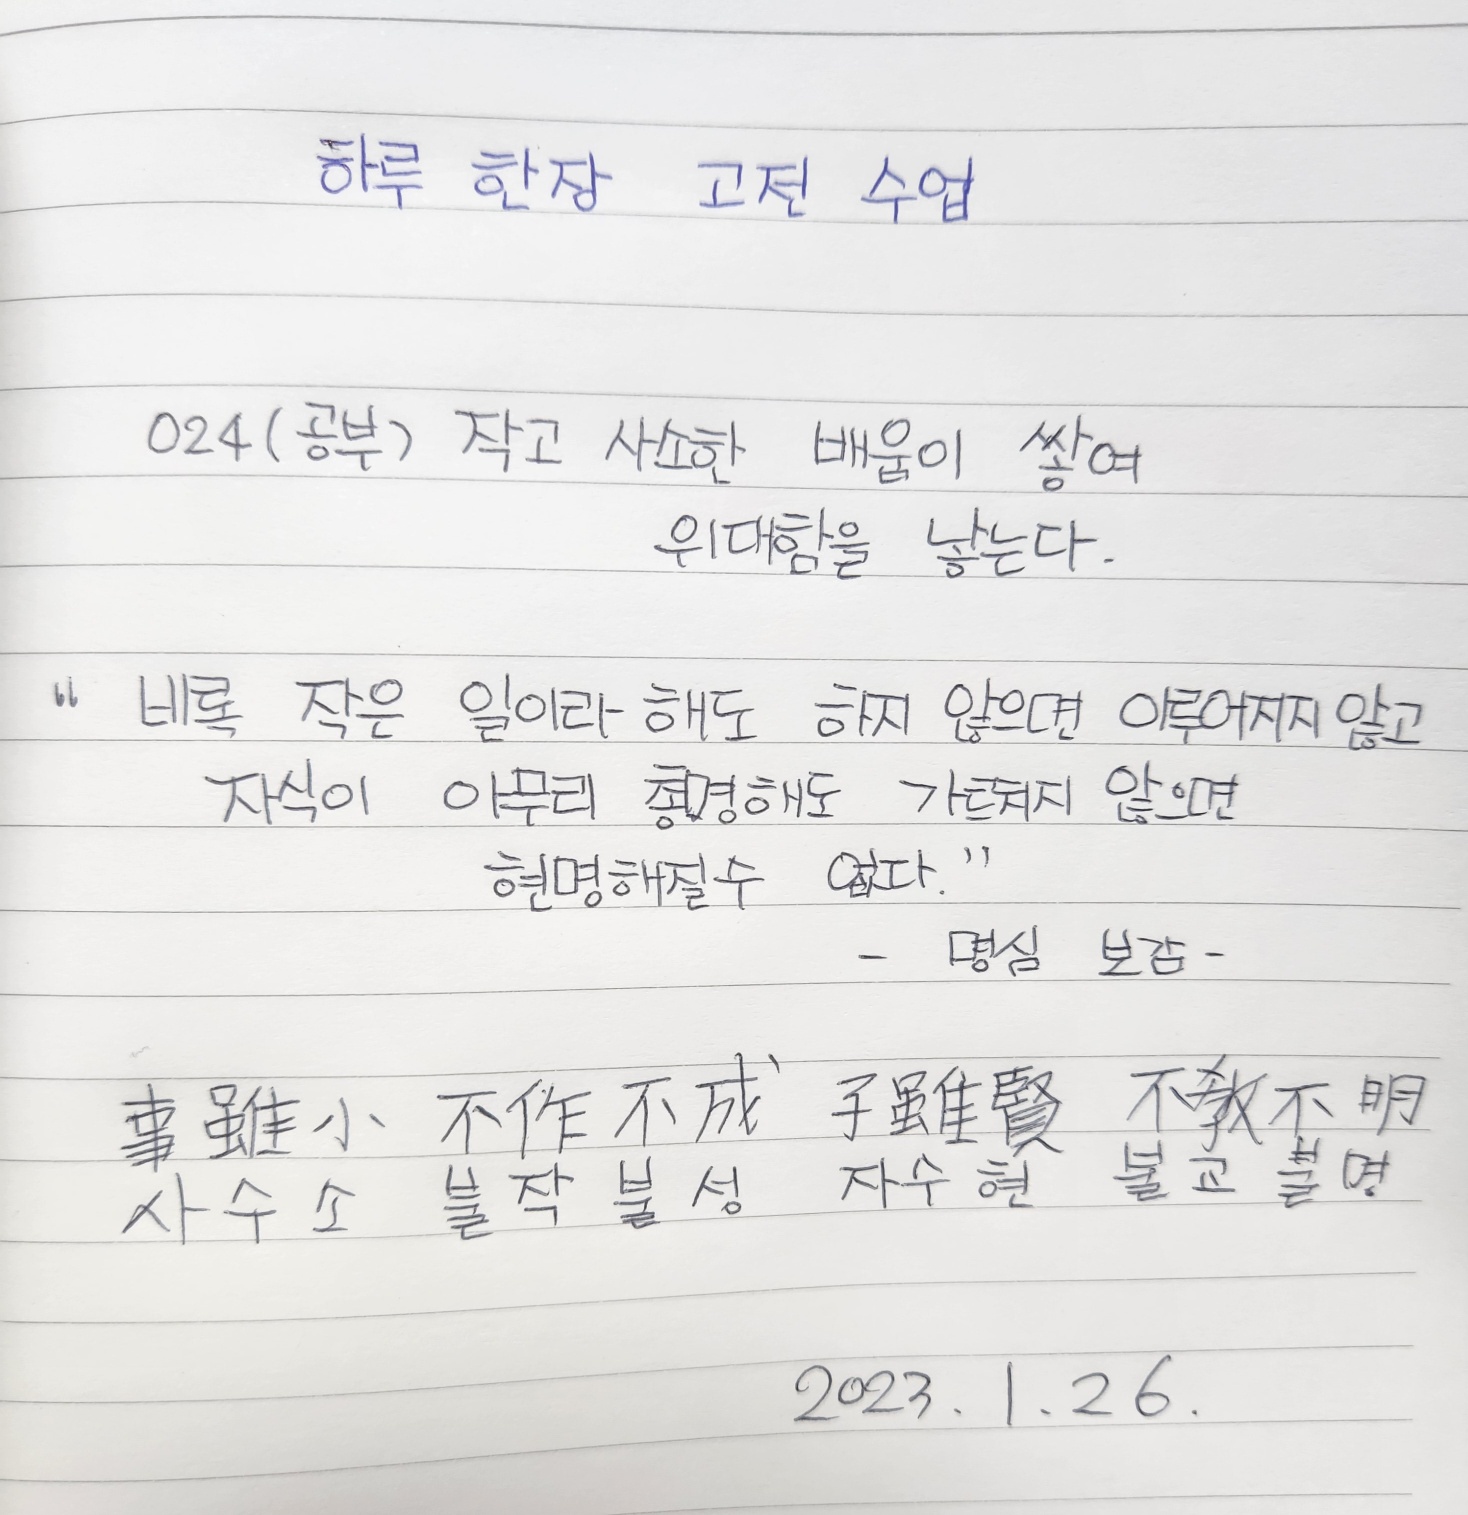 하루 한장 고전 수업
024(공부) 작고 사소한 배움이 쌓여
위대함을 낳는다.
“ 비록 작은 일이라 해도 하지 않으면 이루어지지 않고
자식이 아무리 총명해도 가르쳐지 않으면
현명해질수 없다.”
- 명심 보감 -
事雖小 不作不成 子雖賢 不敎不明
사수소 불작불성 자수현 불교불명
2023. 1. 26.